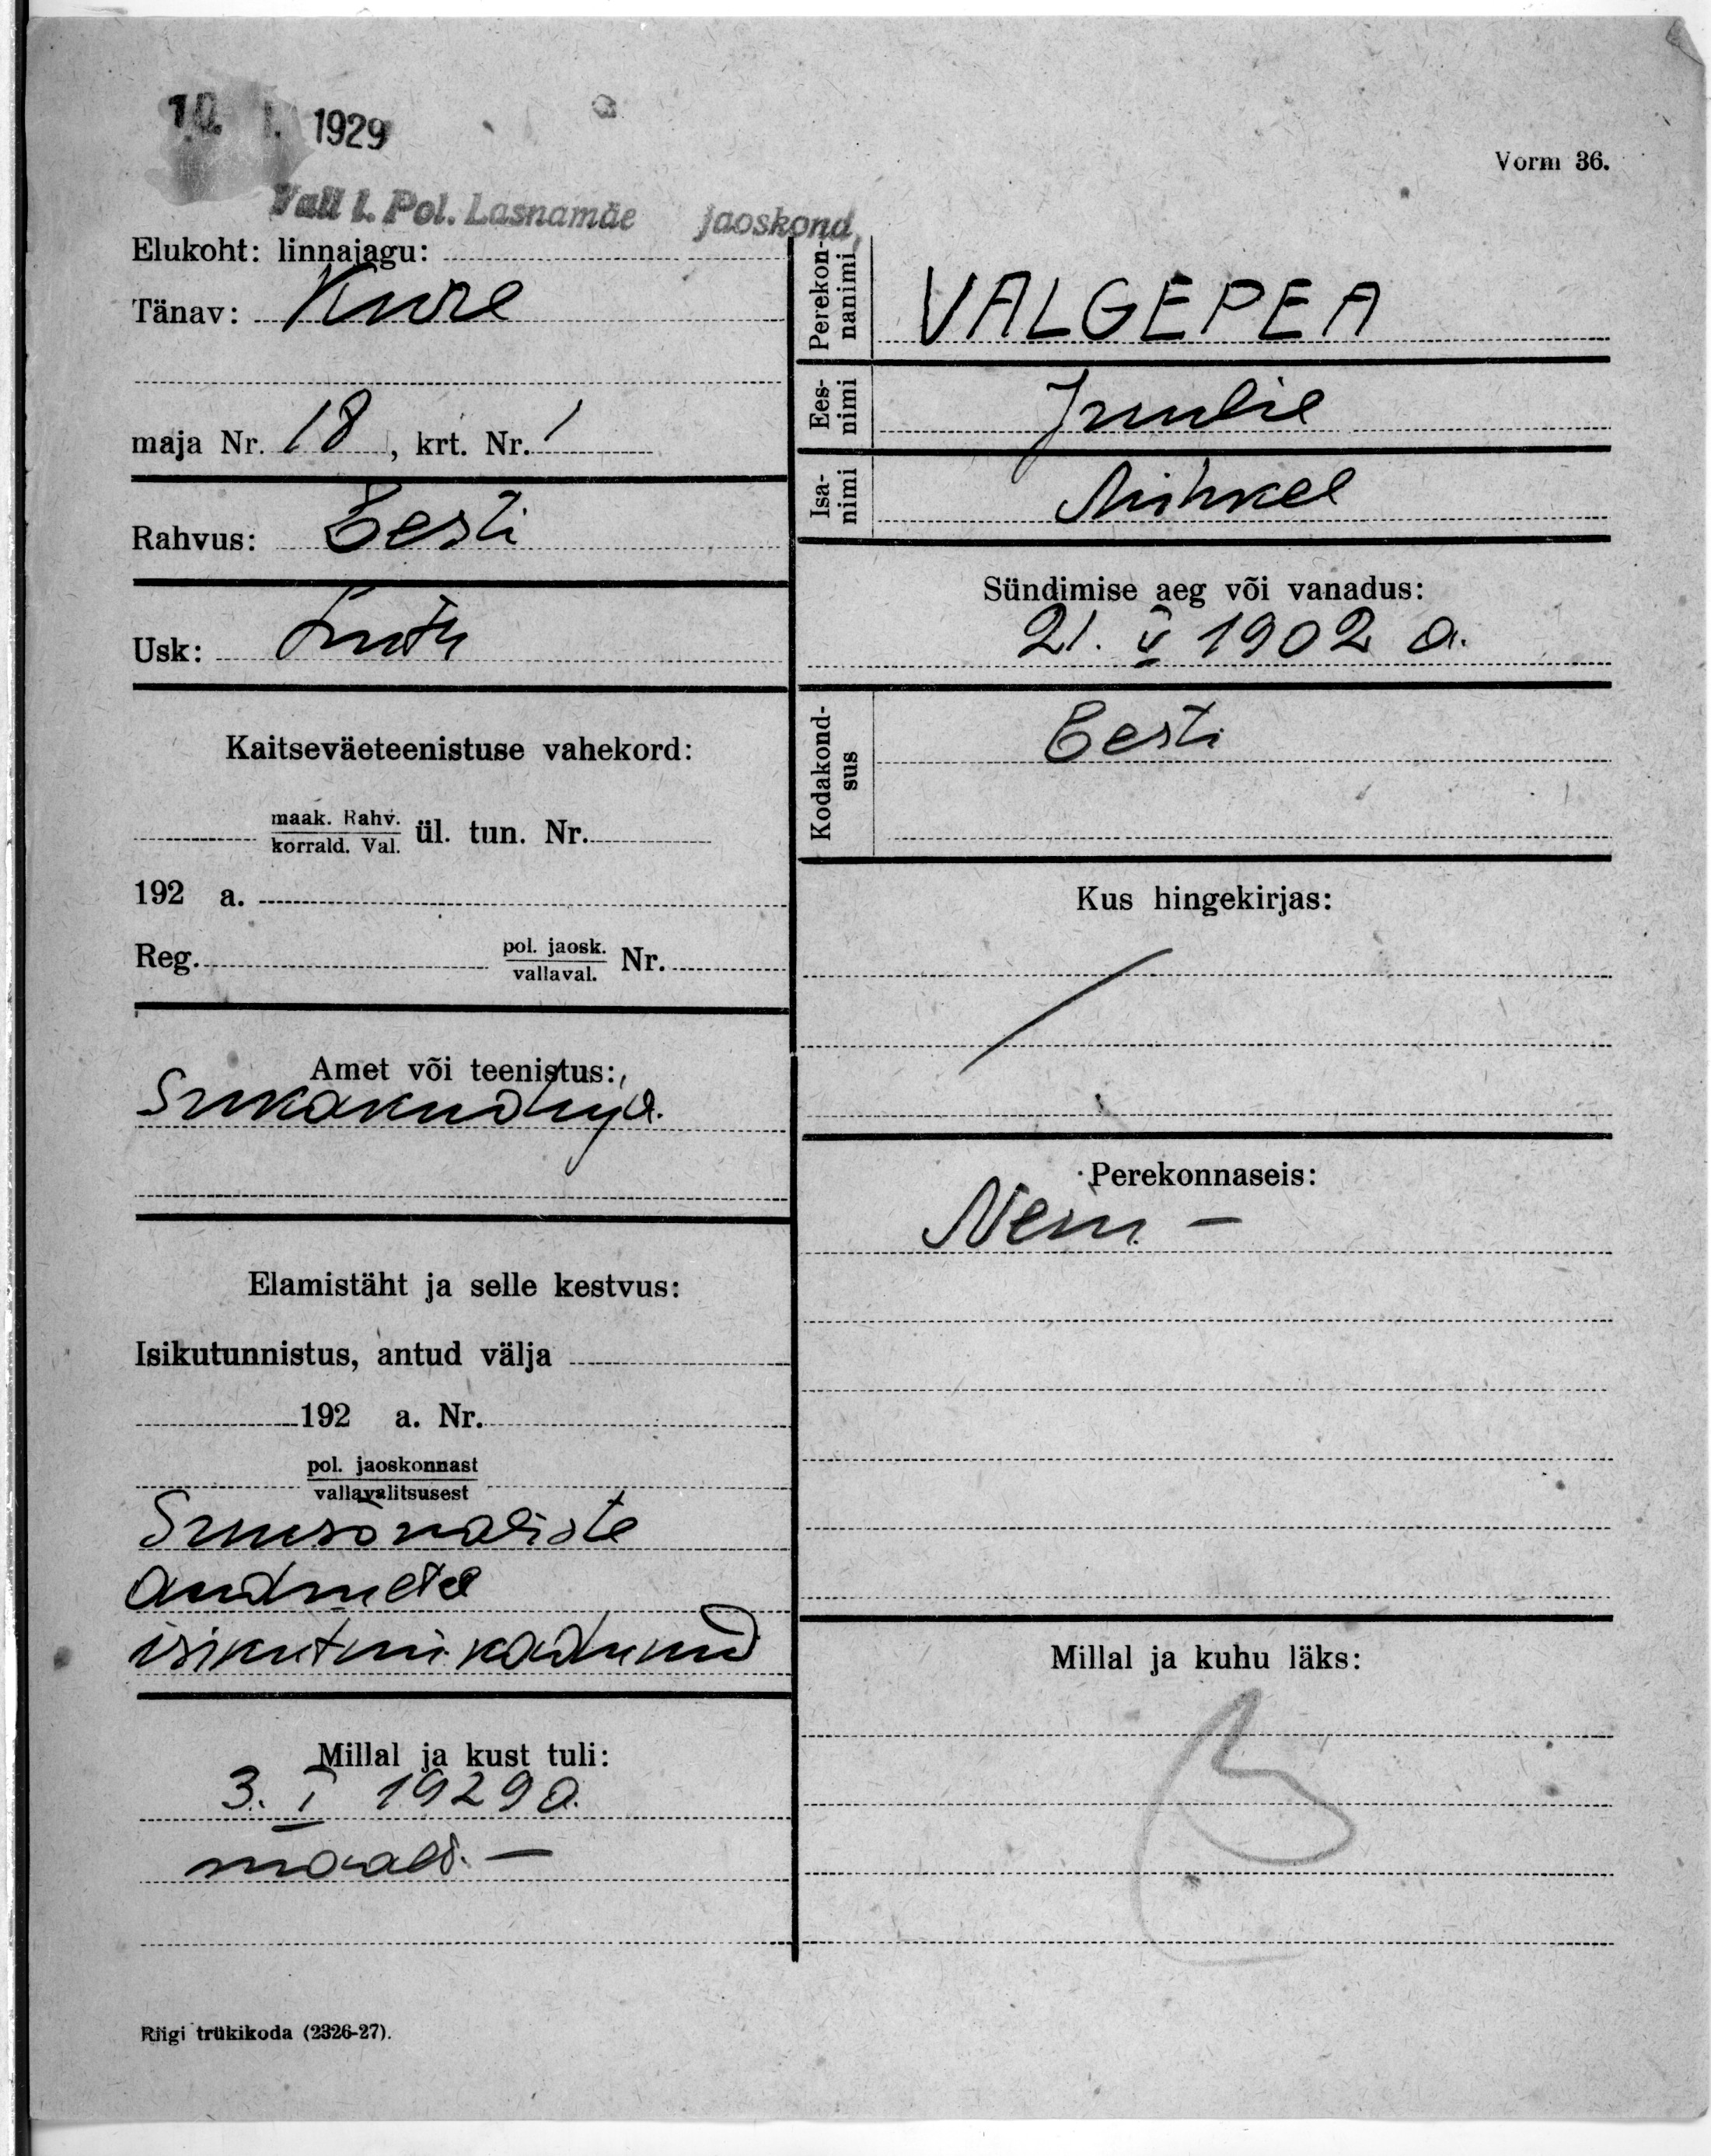 10. I. 1929
Vorm 36.
Tall I. Pol. Lasnamäe jaoskond,
Elukoht: linnajagu:
Tänav: Kure
maja Nr. 18, krt. Nr. 1
Rahvus: Eesti
Usk: Luth
Kaitseväeteenistuse vahekord:
maak. Rahv.
korrald. Val. ül. tun. Nr.
192 a.
Reg. pol. jaosk.
vallaval. Nr.
Amet või teenistus:
Sukakuduja.
Elamistäht ja selle kestvus:
Isikutunnistus, antud välja
192 a. Nr.
pol. jaoskonnast
vallavalitsusest
Suusõnaliste
andmetel
isikutun. kadunud
Millal ja kust tuli:
3. I 1929 a.
maalt. —
Riigi trükikoda (2326-27).
Perekon-
nanimi VALGEPEA
Ees-
nimi Juulie
Isa-
nimi Mihkel
Sündimise aeg või vanadus:
21. V 1902 a.
Kodakond-
sus Eesti
Kus hingekirjas:
Perekonnaseis:
Neiu. —
Millal ja kuhu läks: